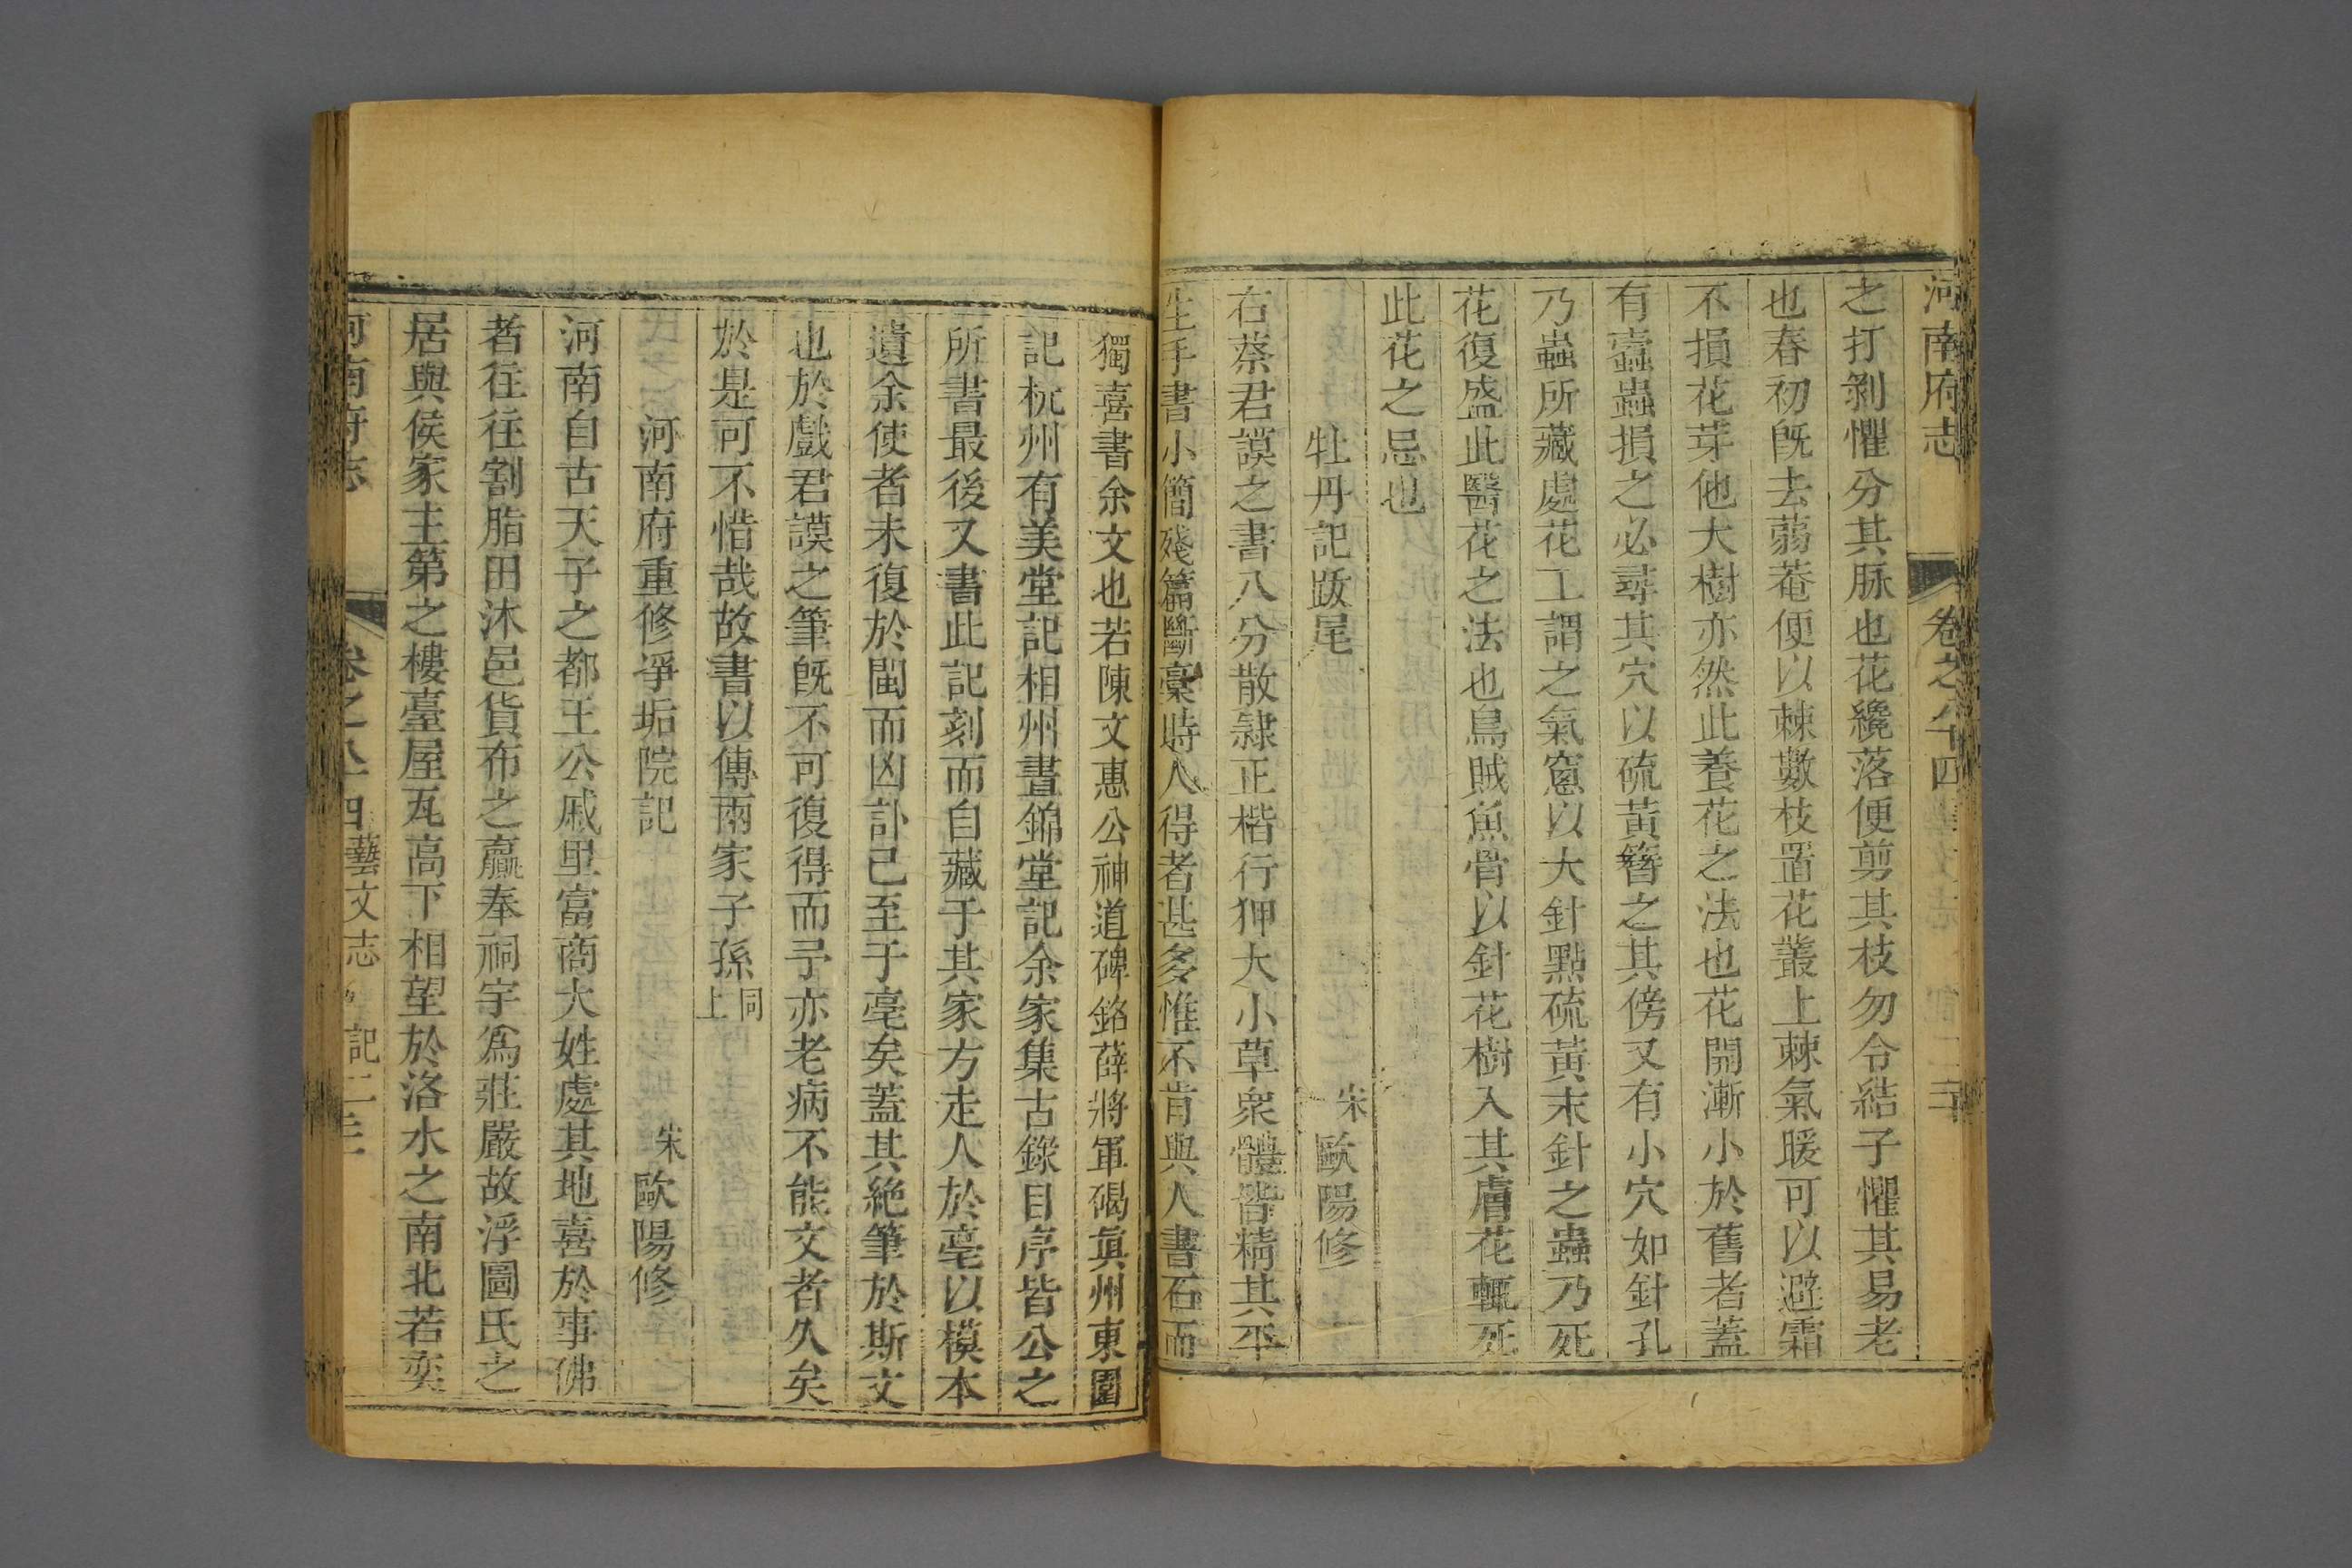 河南府志 卷之八十四
之打剝懼分其脉也花纔落便剪其枝勿令結子懼其易老
也春初旣去蒻菴便以棘數枝置花叢上棘氣暖可以避霜
不損花芽他大樹亦然此養花之法也花開漸小於舊者蓋
有蠹蟲損之必尋其穴以硫黃簪之其傍又有小穴如針孔
乃蟲所藏處花工謂之氣窻以大針點硫黃末針之蟲乃死
花復盛此醫花之法也烏賊魚骨以針花樹入其膚花輒死
此花之忌也
牡丹記跋尾 宋 歐陽修
右蔡君謨之書八分散隸正楷行狎大小草衆體皆精其平
生手書小簡殘篇斷稾時人得者甚多惟不肯與人書石而
獨喜書余文也若陳文惠公神道碑銘薛將軍碣眞州東園
記杭州有美堂記相州晝錦堂記余家集古錄目序皆公之
所書最後又書此記刻而自藏于其家方走人於亳以模本
遺余使者未復於閩而凶訃已至于亳矣蓋其絶筆於斯文
也於戲君謨之筆旣不可復得而予亦老病不能文者久矣
於是可不惜哉故書以傳兩家子孫 同上
河南府重修淨垢院記 宋 歐陽修
河南自古天子之都王公戚里富商大姓處其地喜於事佛
者往往割脂田沐邑貨布之贏奉祠宇爲莊嚴故浮圖氏之
居與侯家主第之樓臺屋瓦高下相望於洛水之南北若奕
河南府志 卷之八十四 藝文志 記二